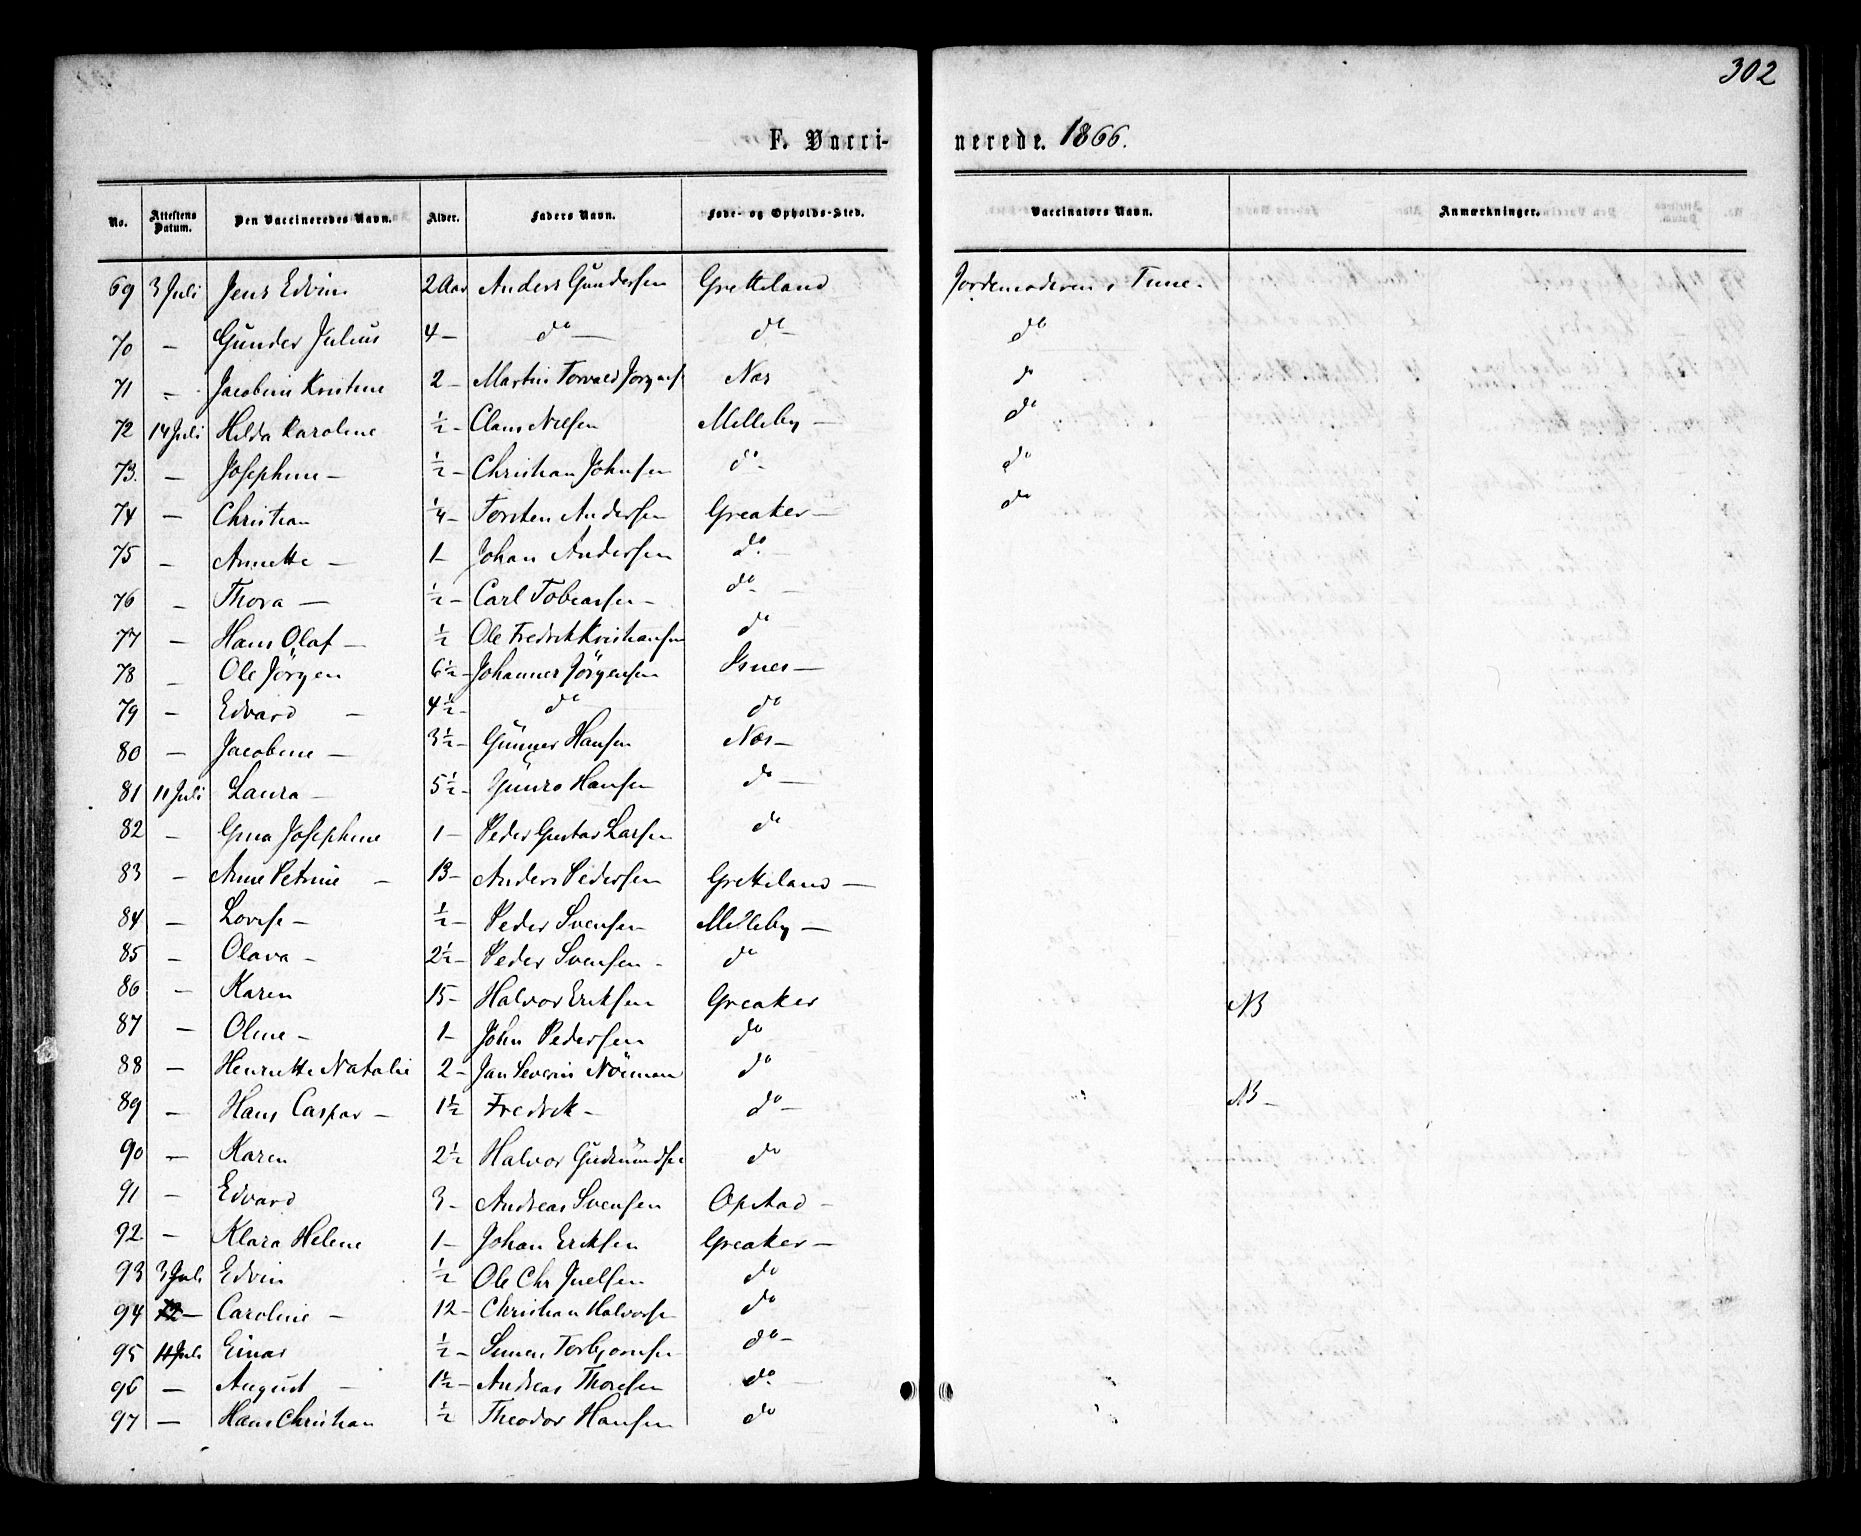 302
F. Vacci- nerede. 1866.
No. Attestens Datum. Den Vaccineredes Navn. Alder. Faders Navn. Føde- og Opholds-Sted. Vaccinatørs Navn. Anmærkninger.
69 3 Juli Jens Edvin 2 Aar Anders Gundersen Gretteland Jordemoderen i Tune.
70 — Gunder Julius 4 — do — do — do
71 — Jacobine Kristine 2 — Martin Torvald Jørgens. Nes do
72 14 Juli Hilda Karoline ½ — Claus Nilsen Melleby — do
73. — Josephine — ½ — Christian Johnsen do — do
74 — Christian ¼ — Torsten Andersen Greaker — do
75 — Annette — 1 — Johan Andersen do. —
76 — Thora — ½ — Carl Tobiassen — do —
77 — Hans Olaf — ½ Ole Fredrik Kristiansen do —
78 — Ole Jörgen 6½ — Johannes Jörgensen Isnes —
79 — Edvard — 4½ — do do
80 — Jacobine — 3½ — Günner Hansen Nes —
81 11 Juli Laura — 5½ — Hansen do —
82 — Gina Josephine 1 — Peder Gustav Larsen do
83 — Anne Petrine — 13 — Anders Pedersen Gretteland —
84 — Lovise — ½ — Peder Svensen Melleby —
85 — Olava — 2½ — Peder Svensen — do
86 — Karen 15 — Halvor Eriksen Greaker NB
87 — Oline — 1 — John Pedersen do
88 — Henriette Natalie 2 — Jan Severin do
89 — Hans Caspar — 1½ Fredrik — do — NB —
90 — Karen 2½ Halvor Gudmündse do
91 — Edvard 3 — Andreas Svensen Opstad —
92 — Klara Helene 1 — Johan Eriksen Greaker —
93 3 Juli Edvin ½ Ole Chr Juelsen do
94 — Caroline — 12 — Christian Halvorse do
95 11 Juli Einar ½ — Simen Torbjørnsen do —
96 — August — 1½ — Andreas Thoresen do. —
97 — Hans Christian ½ Theodor Hansen do